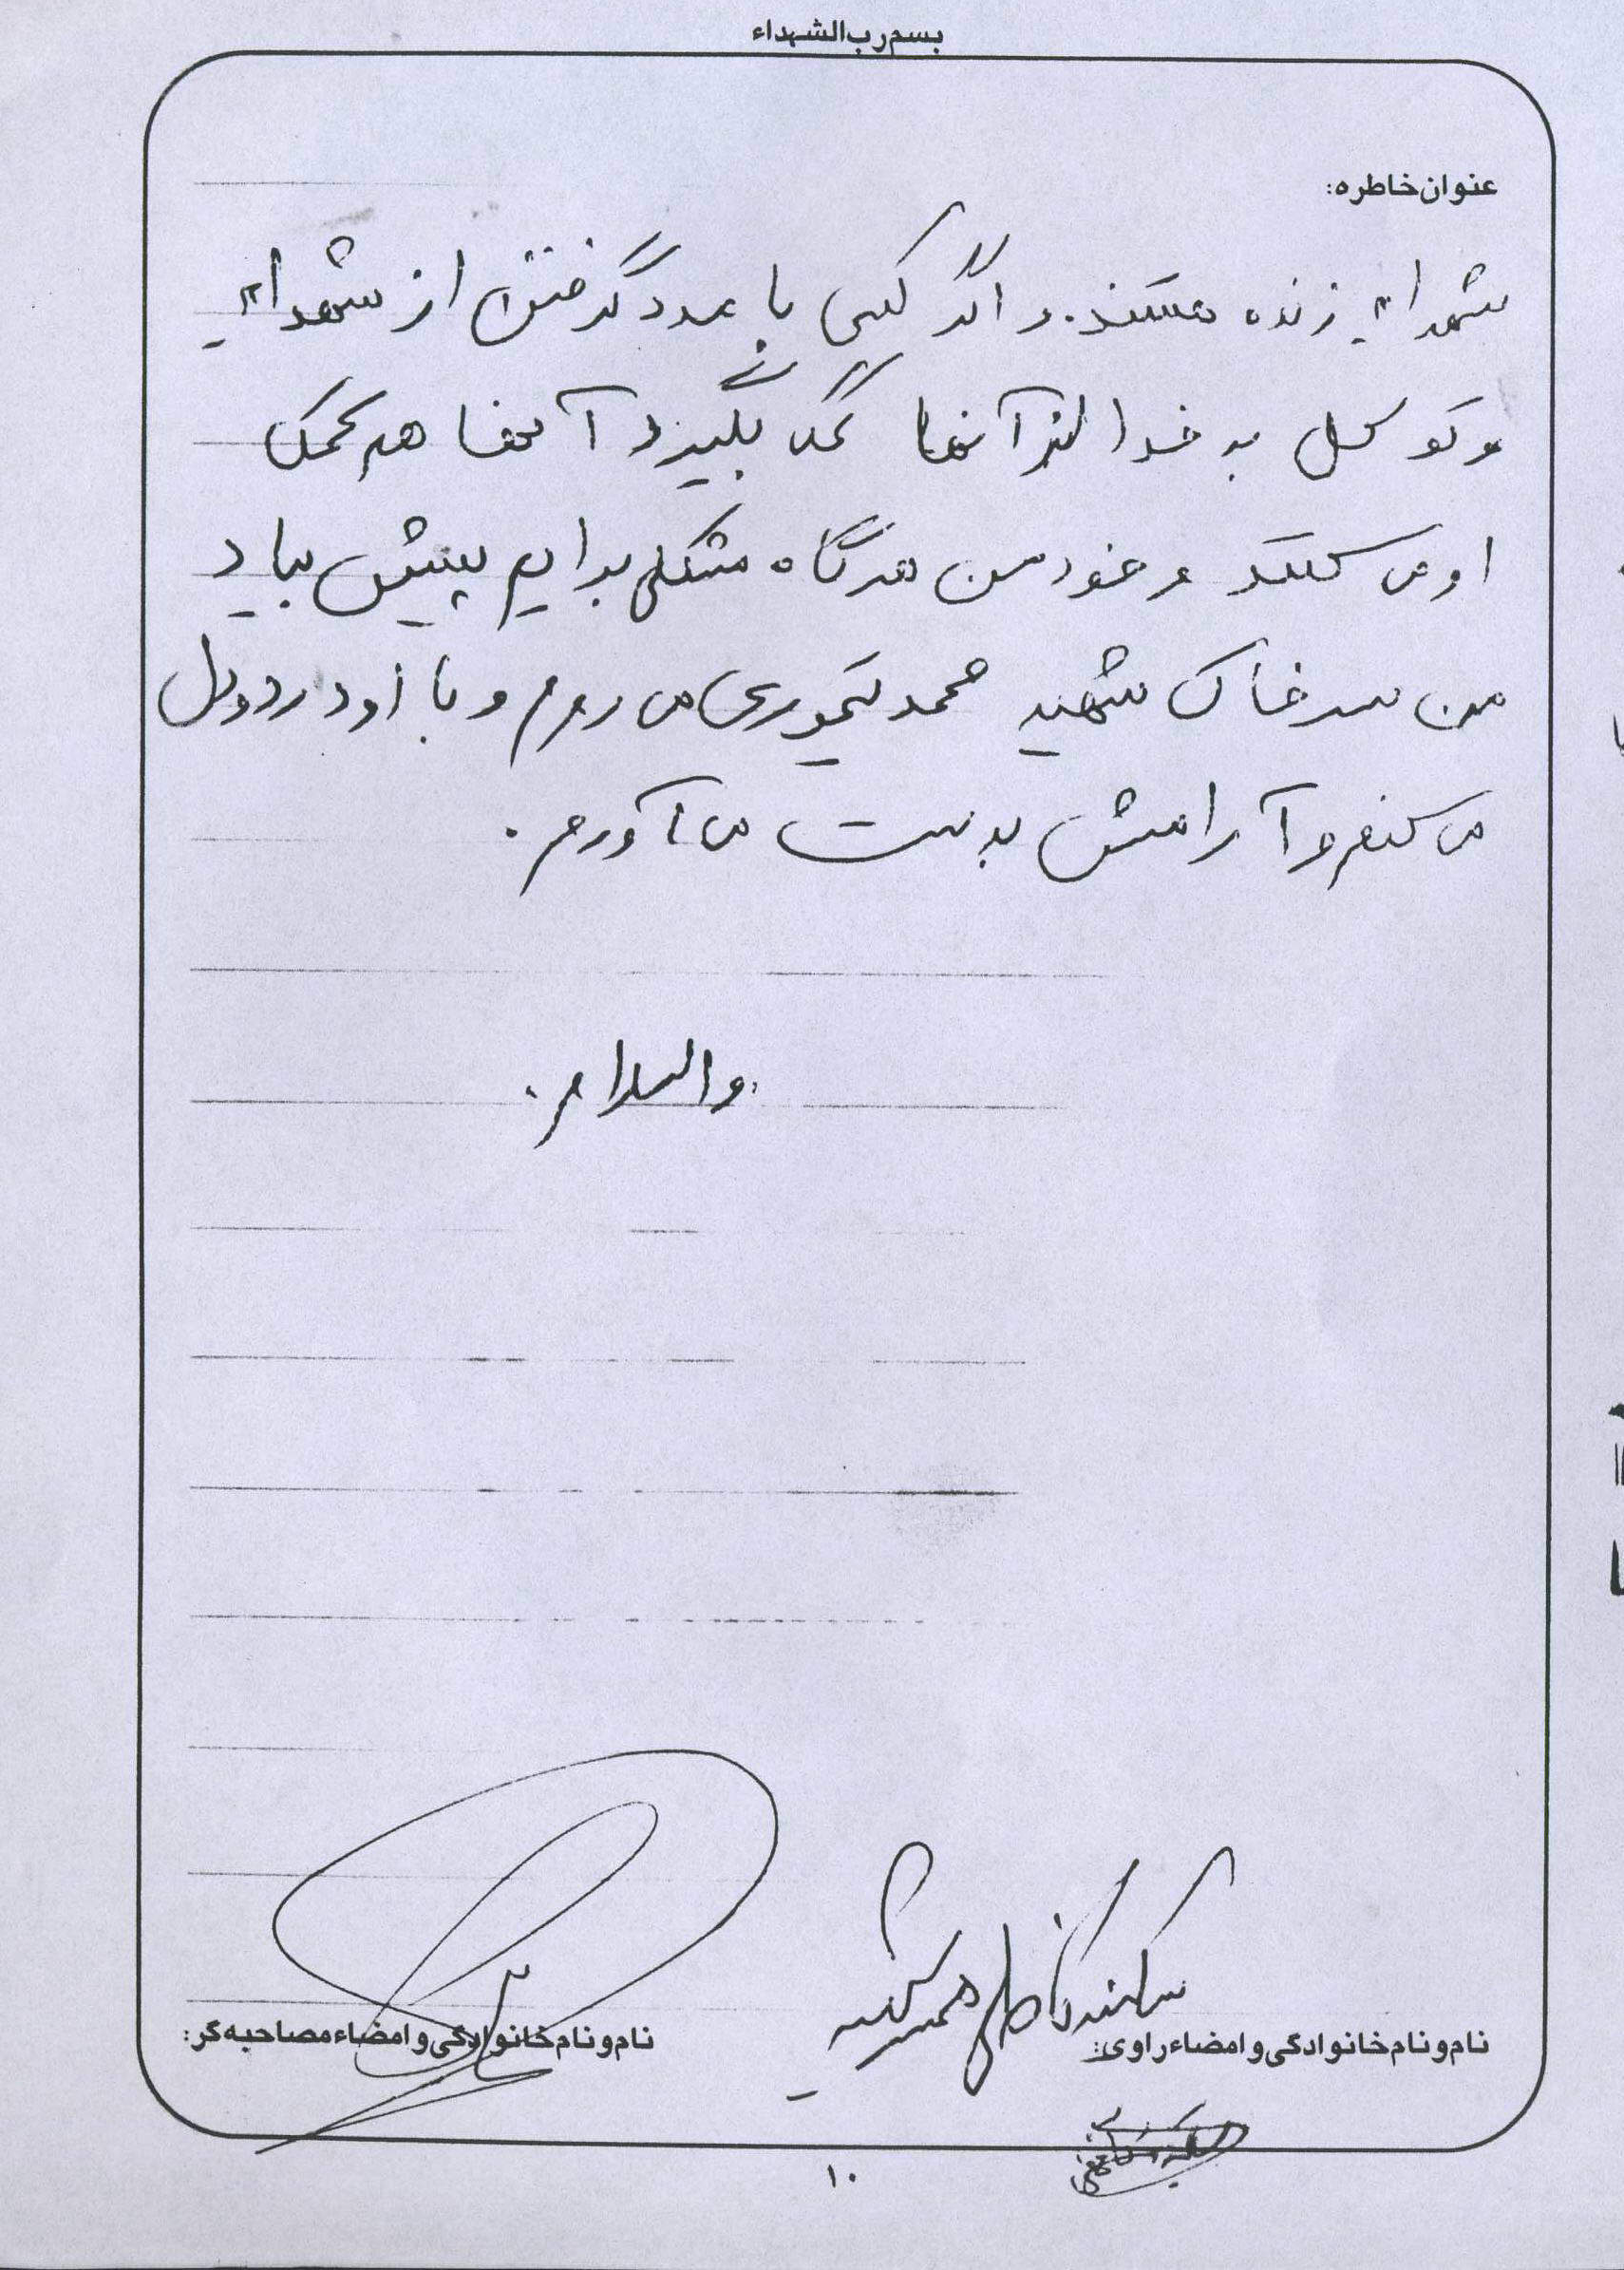 بسم رب الشهداء
عنوان خاطره:
شهداء زنده هستند. و اگر کسی با مدد گرفتن از شهداء
و توکل به خدا از آنها کمک بگیرد آنها هم کمک
او می کنند و خود من هرگاه مشکلی برایم پیش بیاد
من سر خاک شهید محمد تیموری می روم و با او درد و دل
می کنم و آرامش بدست می آورم.
والسلام.
سکینه کاظمی همسر شهید
نام و نام خانوادگی و امضاء راوی:
نام و نام خانوادگی و امضاء مصاحبه گر:
۱۰